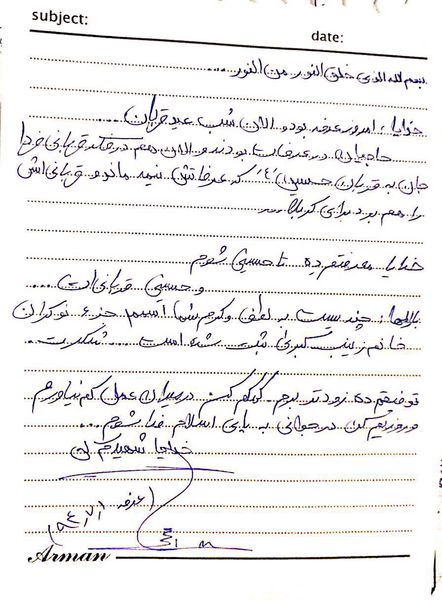 subject:
date:
بسم الله الذی خلق النور من النور...
خدایا؛ امروز عرفه بود و الان شب عید قربان...
حاجیان در عرفات بودند و الان هم در فکر قربانی فردا
جان به قربان حسین (ع) که عرفاتش نیمه ماند و قربانی‌اش
را هم برد برای کربلا...
خدایا معرفتم ده تا حسینی شوم
و حسینی قربانی‌ات...
بارالها؛ چند بیست به لطف و کرم شما اسمم جزء نوکران
خانم زینب کبری ثبت شده است... شکرت...
توفیقم ده زودتر بروم کمکم کن در میدان عمل کم نیاورم
و روزیم کن در جوانی به پای اسلام فدا شوم...
خدایا شهیدم کن
(عرفه ۹۴/۷/۱)
Arman